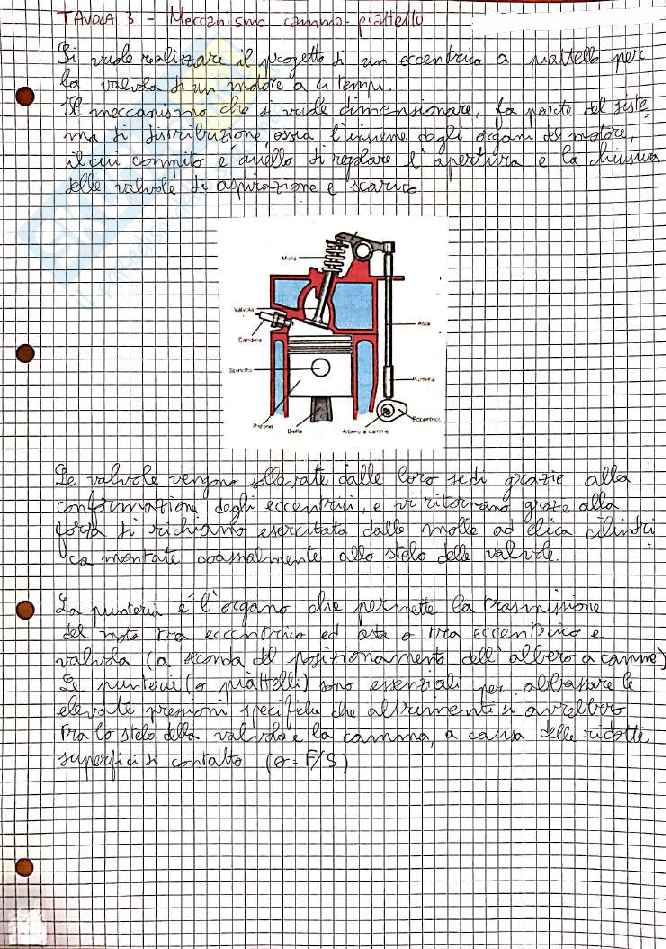 TAVOLA 3 - Meccanismo camma-piattello
Si vuole realizzare il progetto di un eccentrico a piattello per
la valvola di un motore a 4 tempi.
Il meccanismo che si vuole dimensionare, fa parte del siste
ma di distribuzione, ossia l'insieme degli organi del motore,
il cui compito è quello di regolare l'apertura e la chiusura
delle valvole di aspirazione e scarico
Molla
Valvola
Candela
Asta
Spinotto
Punteria
Pistone
Biella
Albero a camme
Eccentrico
Le valvole vengono sollevate dalle loro sedi grazie alla
conformazione degli eccentrici, e vi ritornano grazie alla
forza di richiamo esercitata dalle molle ad elica cilindri
ca montate coassialmente allo stelo delle valvole.
La punteria è l'organo che permette la trasmissione
del moto tra eccentrico ed asta o tra eccentrico e
valvola (a seconda del posizionamento dell'albero a camme)
I punterii (o piattelli) sono essenziali per abbassare le
elevate pressioni specifiche che altrimenti si avrebbero
tra lo stelo della valvola e la camma, a causa delle ridotte
superfici di contatto (σ = F/S)